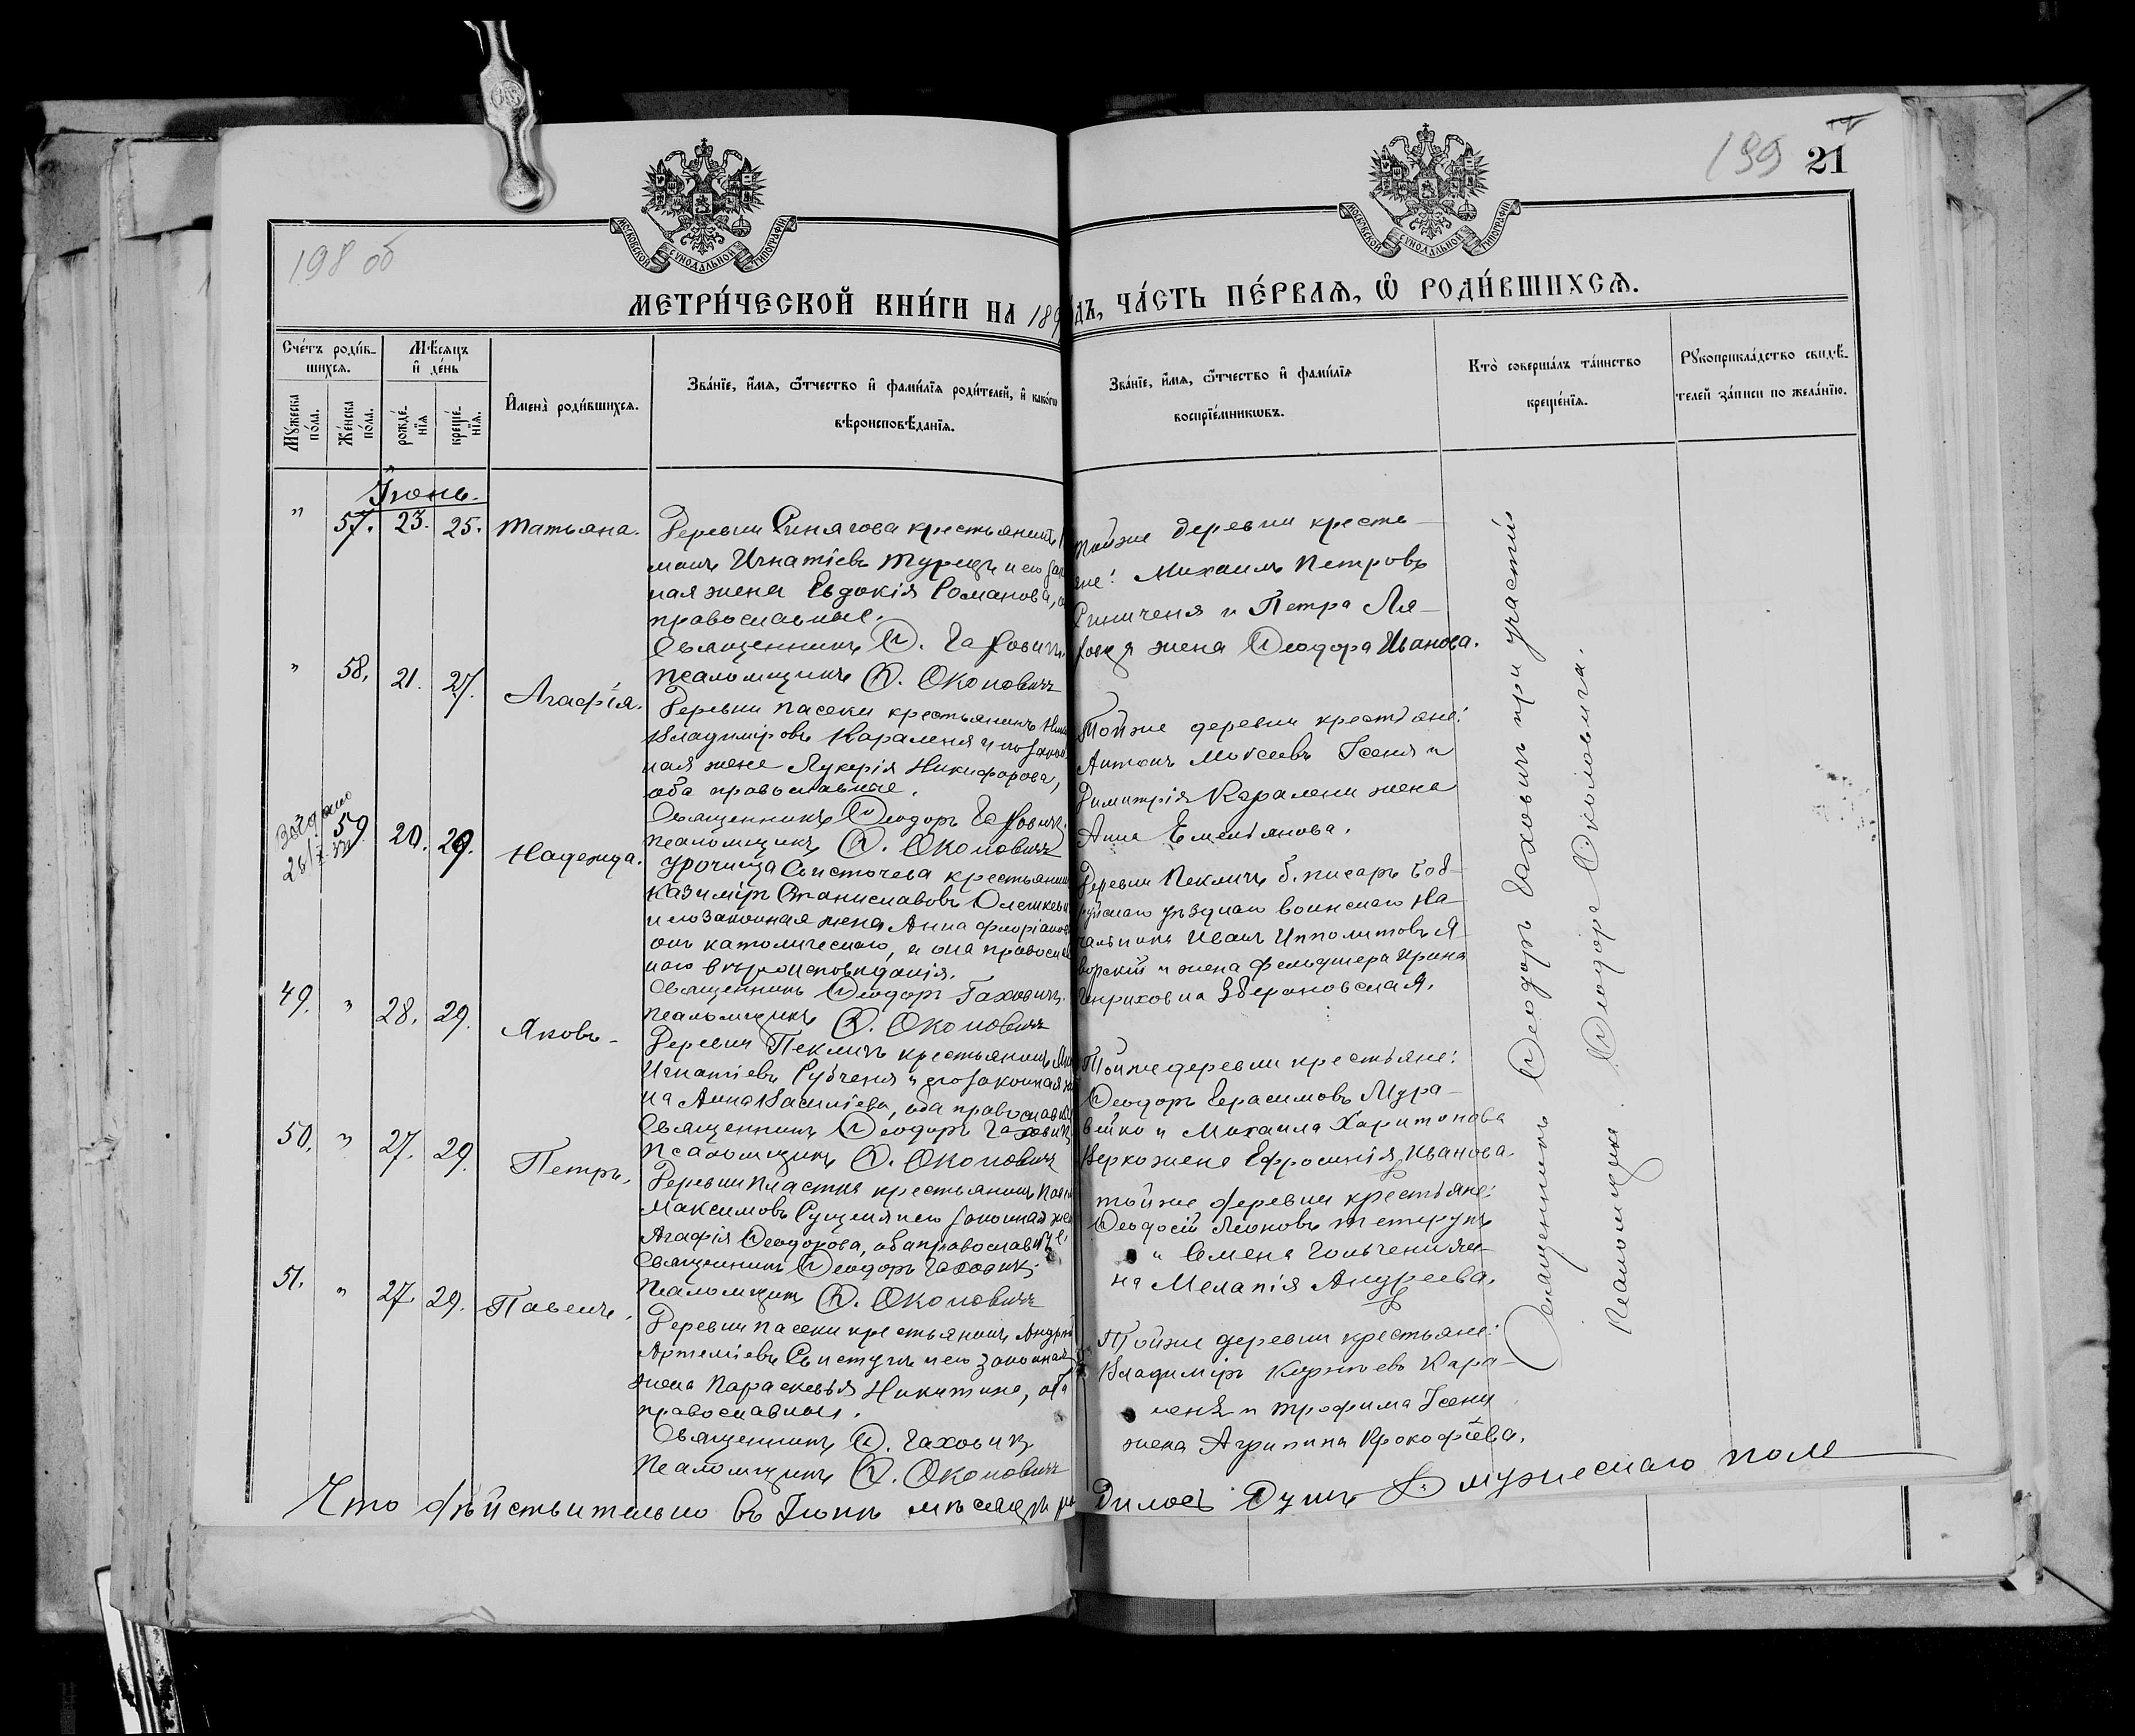 198 об
199 21
МОСКОВСКОЙ СѴНОДАЛЬНОЙ ТИПОГРАФІИ
МОСКОВСКОЙ СѴНОДАЛЬНОЙ ТИПОГРАФІИ
МЕТРИ́ЧЕСКОЙ КНИ́ГИ НА 189 ДЪ, ЧА́СТЬ ПЕ́РВАѦ, Ѡ҆ РОДИ́ВШИХСѦ.
Сче́тъ роди́в-
шихсѧ.
Мѹ́жеска по́ла.
Же́нска по́ла.
Мѣ́сяцъ
и҆ де́нь
рожде́-
нїѧ
креще́-
нїѧ.
И҆мена̀ роди́вшихсѧ.
Зва́нїе, и҆́мѧ, ѻ҆́тчество и҆ фами́лїѧ роди́телей, и҆ како́гѡ
вѣроисповѣ́данїѧ.
Зва́нїе, и҆́мѧ, ѻ҆́тчество и҆ фами́лїѧ
воспрїе́мникѡвъ.
Кто̀ соверша́лъ та́инство
креще́нїѧ.
Рѹкоприкла́дство свидѣ́-
телей за́писи по жела́нїю.
Іюнь.
" 57. 23. 25. Татьяна.
Деревни Синягова крестьянинъ
Игнатіевъ Турецъ и его
ная жена Евдокія Романова,
православные.
Священникъ Ѳ. Гаховичъ.
Псаломщикъ Ѳ. Околовичъ
Тойже деревни кресть-
яне: Михаилъ Петровъ
Синиченя и Петра
жена Ѳеодора Иванова.
" 58. 21. 27. Агафія.
Деревни Пасеки крестьянинъ
Владиміровъ Караленя и его закон
ная жена Лукерія Никифорова,
оба православные.
Священникъ Ѳеодоръ Гаховичъ.
Псаломщикъ Ѳ. Околовичъ
Тойже деревни крестьяне:
Антонъ Моисеевъ Ісеня и
Димитрія Каралени жена
Анна Емельянова.
59. 20. 29. Надежда.
Урочища Систочева крестьянинъ
Казиміръ Станиславовъ
и его законная жена Анна Флоріанов
онъ католическаго, и она православ
наго вѣроисповѣданія.
Священникъ Ѳеодоръ Гаховичъ.
Псаломщикъ Ѳ. Околовичъ
Деревни Пекличъ б. писарь Боб-
руйскаго уѣзднаго воинскаго На-
чальника Иванъ Ипполитовъ Я-
ворскій и жена фельдшера Ирина
Генриховна
49. " 28. 29. Яковъ-
Деревни Пекличъ крестьянинъ
Игнатіевъ Рубченя и его законная же
на Анна Василіева, оба православные
Священникъ Ѳеодоръ Гаховичъ
Псаломщикъ Ѳ. Околовичъ
Тойже деревни крестьяне:
Ѳеодоръ Герасимовъ Мура-
вейко и Михаила Харитонова
Верко жена Ефросинія Иванова.
50. " 27. 29. Петръ.
Деревни Пластка крестьянинъ
Максимовъ Рущеня и его законная же
Агафія Ѳеодорова, оба православные.
Священникъ Ѳеодоръ Гаховичъ
Псаломщикъ Ѳ. Околовичъ
Тойже деревни крестьяне:
Ѳеодосій Леоновъ Тетерукъ
и Семена Гольчени же-
на Меланія Андреева.
51. " 27. 29. Павелъ.
Деревни Пасеки крестьянинъ Андрей
Артеміевъ Свистунъ и его законная
жена Параскевія Никитина, оба
православные.
Священникъ Ѳ. Гаховичъ
Псаломщикъ Ѳ. Околовичъ
Тойже деревни крестьяне:
Владиміръ Корніевъ Кара-
леня и Трофима Ісени
жена Агрипина Прокофіева.
Священникъ Ѳеодоръ Гаховичъ при участіи
Псаломщика Ѳеодора Околовича.
Что дѣйствительно въ Іюнѣ мѣсяцѣ ро дилось Душъ мужескаго пола